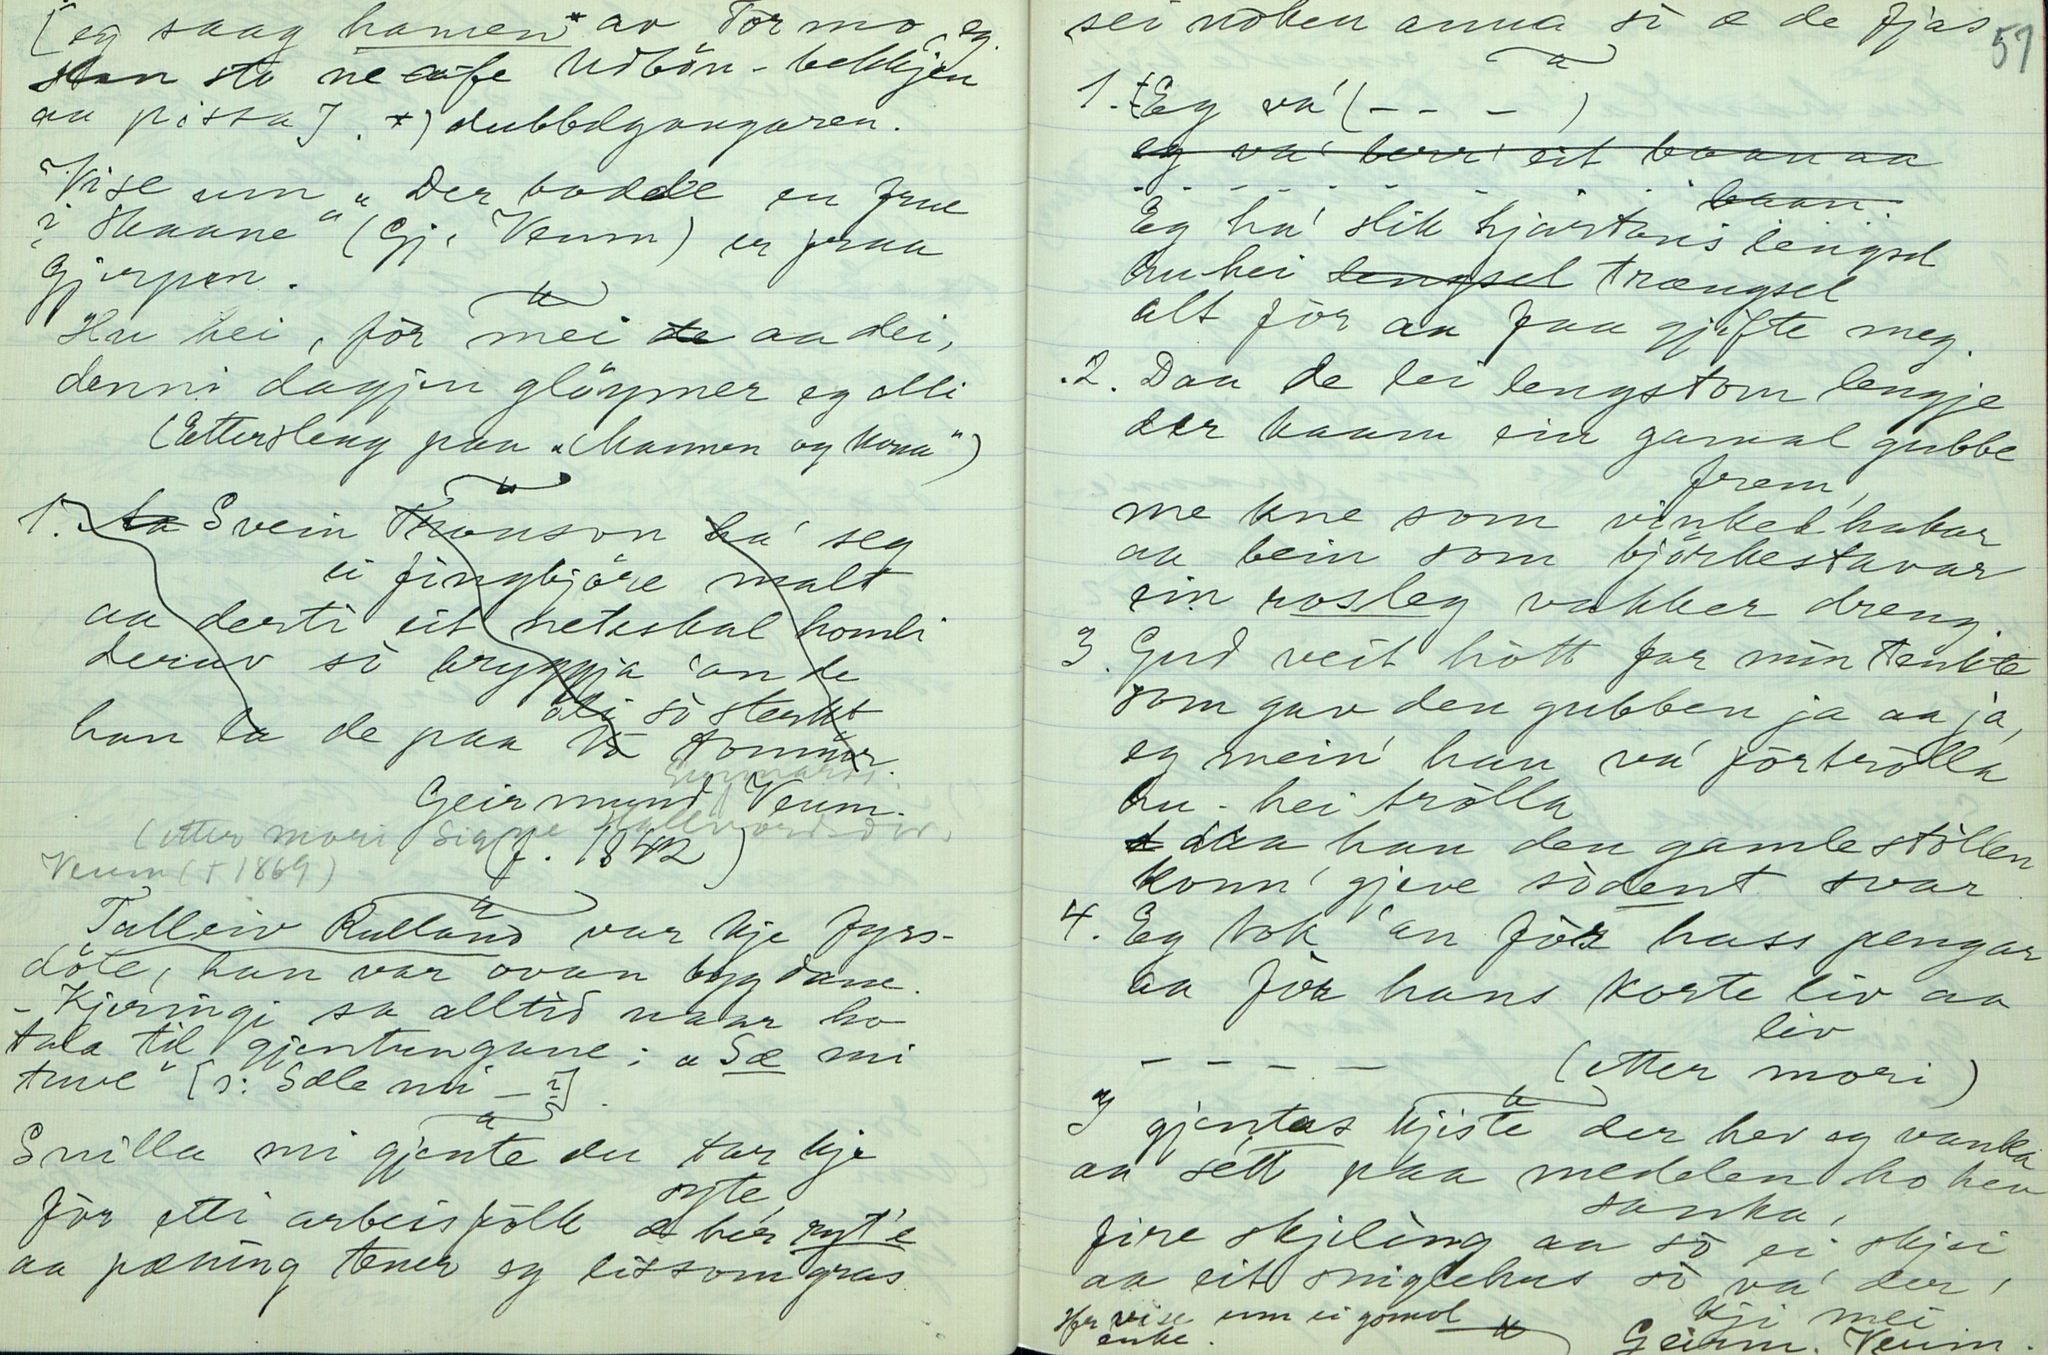 [eg saag hamen* av Tormo, eg
stan sto ne afe Udbön-bekkjen
aa pissa]. *) dubbelgangaren.
Vise um „Der bodde en frue
i Skaane" (Gj. Veum) er fraa
Gjerpen.
Hu hei, för mei de aa dei,
denni dagjen glöymer eg alli
(Ettersleng paa „Mannen og kona")
1. ha Svein Tronson ha' seg
ei fingbjöre malt
aa derti eit neteskal homli
derav sò bryggja 'an de
öli sò sterkt
han la de paa to tommar.
Gunnarss.
Geirmund Veum.
(etter mori Signe Hallvordsdtr.
(f. 1842)
Veum († 1869)
Talleiv Rulland var kje fyrs-
döte, han var ovan bygdane.
- Kjeringi sa alltid naar ho
tala til gjentungane: „Sæ mi
tuve" [ɔ: Sæle mi — ?].
Snilla mi gjente du tar kje
syte
för etti arbeisfölk æ her ryt'e
aa pæning tener eg lissom gras
57
sei noken anna sò æ de fjas
1. Eg va' (- - - )
eg va' berr' eit baan aa
- - - - - - - - - baan
Eg ha' slik hjartans lengsel
hu hei lengsel trængsel
alt för aa faa gjifte meg.
2. Daa de lei lengstom lengje
der kaam ein gamal gubbe
frem,
me kne som vinkelhakar
aa bein som björkestavar
ein rosleg vakker dreng.
3. Gud veit hòtt far min tenkte
som gav den gubben ja aa ja,
eg mein' han va' förtrölla
hu-hei trölla
daa han den gamle stöllen
konn' gjeve sòdent svar
4. Eg tok 'an för hass pengar
aa för hans korte liv aa
liv
- - - - (etter mori)
I gjentas kjiste der hev eg vanka
aa sétt paa medelen ho hev
sanka,
fire skjiling aa sò ei skjei
aa eit sniglehus sò va' der,
kji mei
Her vise um ei gomol
enke. Geirm. Veum.